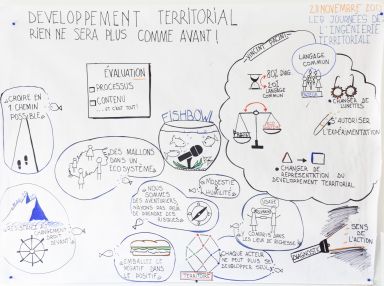 DEVELOPPEMENT TERRITORIAL
RIEN NE SERA PLUS COMME AVANT!
LES JOURNÉES DE
L'INGÉNIERIE
TERRITORIALE
ÉVALUATION
PROCESSUS
CONTENU
... ET C'EST TOUT!
CROIRE EN
1 CHEMIN
POSSIBLE
FISHBOWL
80% DIAG
LANGAGE
COMMUN
LANGAGE
COMMUN
CHANGER DE
LUNETTES
S'AUTORISER
L'EXPÉRIMENTATION
CHANGER DE
REPRÉSENTATION DU
DÉVELOPPEMENT TERRITORIAL
DES MAILLONS
DANS UN
ECOSYSTÈME
NOUS
SOMMES
DES AVENTURIERS,
N'AYONS PAS PEUR
DE PRENDRE DES
RISQUES
MODESTIE
&
HUMILITÉ
CHANGEMENT
DROIT
DEVANT
EMBALLEZ LE
NÉGATIF DANS
LE POSITIF
TERRITOIRE
COMPRIS DANS
LES LIEUX DE RICHESSE
CHAQUE ACTEUR
NE PEUT PLUS SE
DÉVELOPPER SEUL
DIAGNOSTIC
SENS
DE
L'ACTION